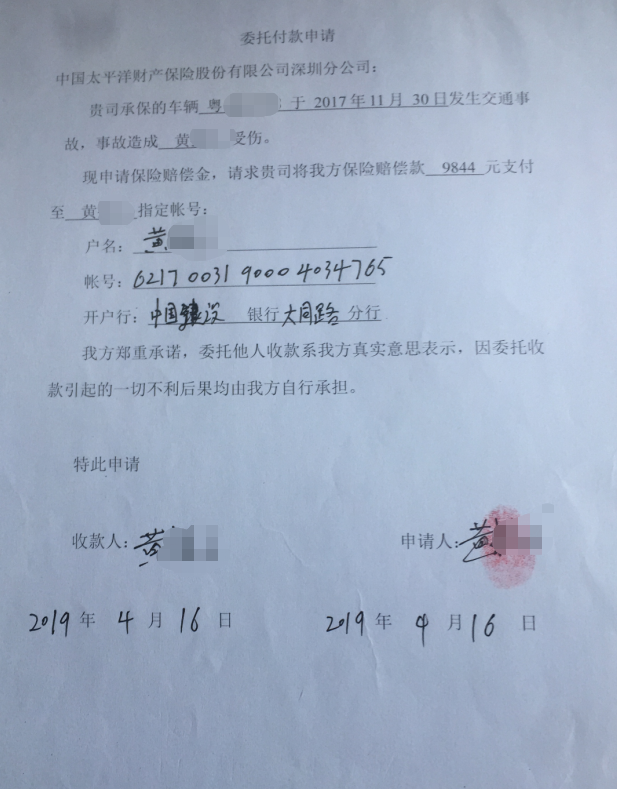 委托付款申请
中国太平洋财产保险股份有限公司深圳分公司：
贵司承保的车辆 粤 于 2017年11月 30日发生交通事
故，事故造成 黄 受伤。
现申请保险赔偿金，请求贵司将我方保险赔偿款 9844 元支付
至 黄 指定帐号：
户名：黄
帐号：6217 0031 9000 4034765
开户行：中国建设 银行 大同路 分行
我方郑重承诺，委托他人收款系我方真实意思表示，因委托收
款引起的一切不利后果均由我方自行承担。
特此申请
收款人：黄 申请人：黄
2019 年 4 月 16 日 2019 年 4 月 16 日